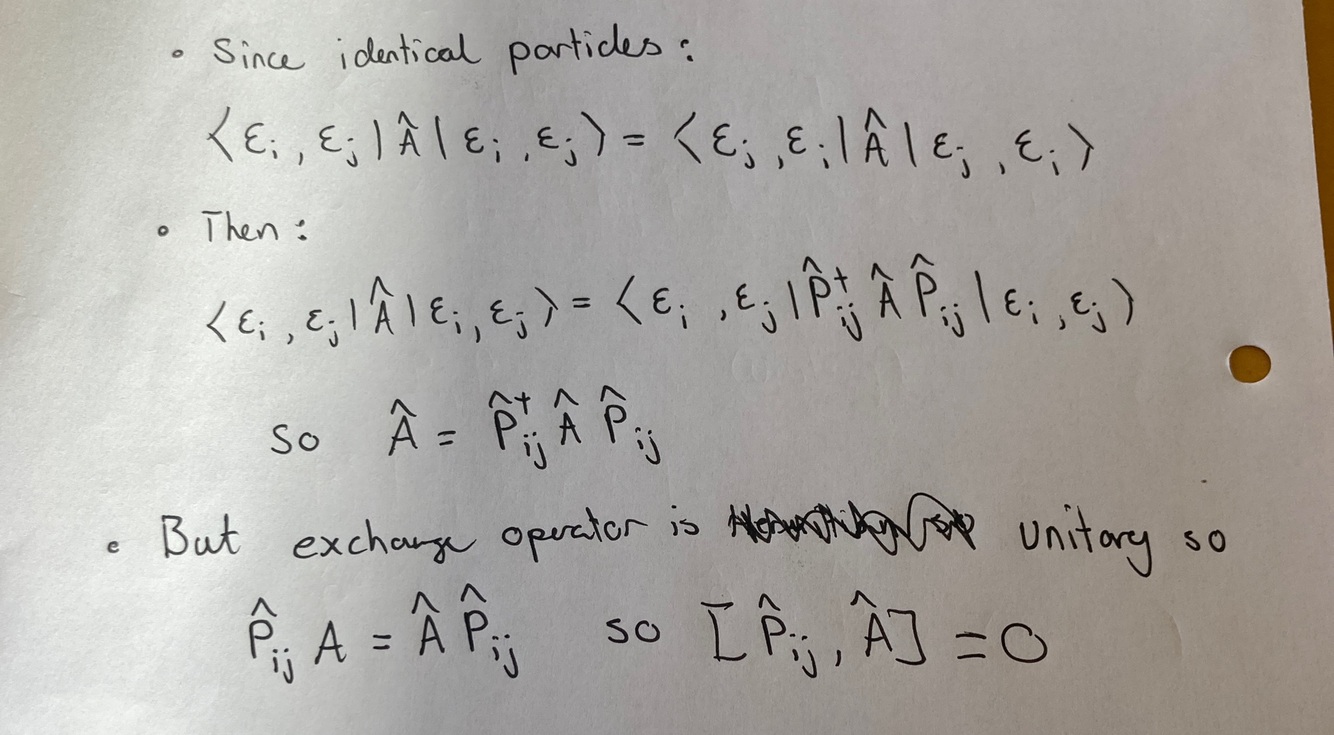 • Since identical particles:
⟨εi , εj | Â | εi , εj⟩ = ⟨εj , εi | Â | εj , εi⟩
• Then:
⟨εi , εj | Â | εi , εj⟩ = ⟨εi , εj | P̂†ij Â P̂ij | εi , εj⟩
so Â = P̂†ij Â P̂ij
• But exchange operator is unitary so
P̂ij A = Â P̂ij so [P̂ij , Â] = 0